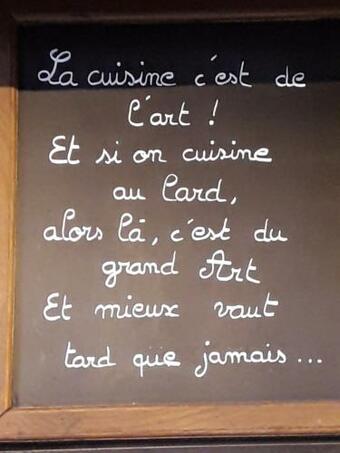 La cuisine c'est de
l'art !
Et si on cuisine
au lard,
alors là, c'est du
grand Art
Et mieux vaut
tard que jamais...